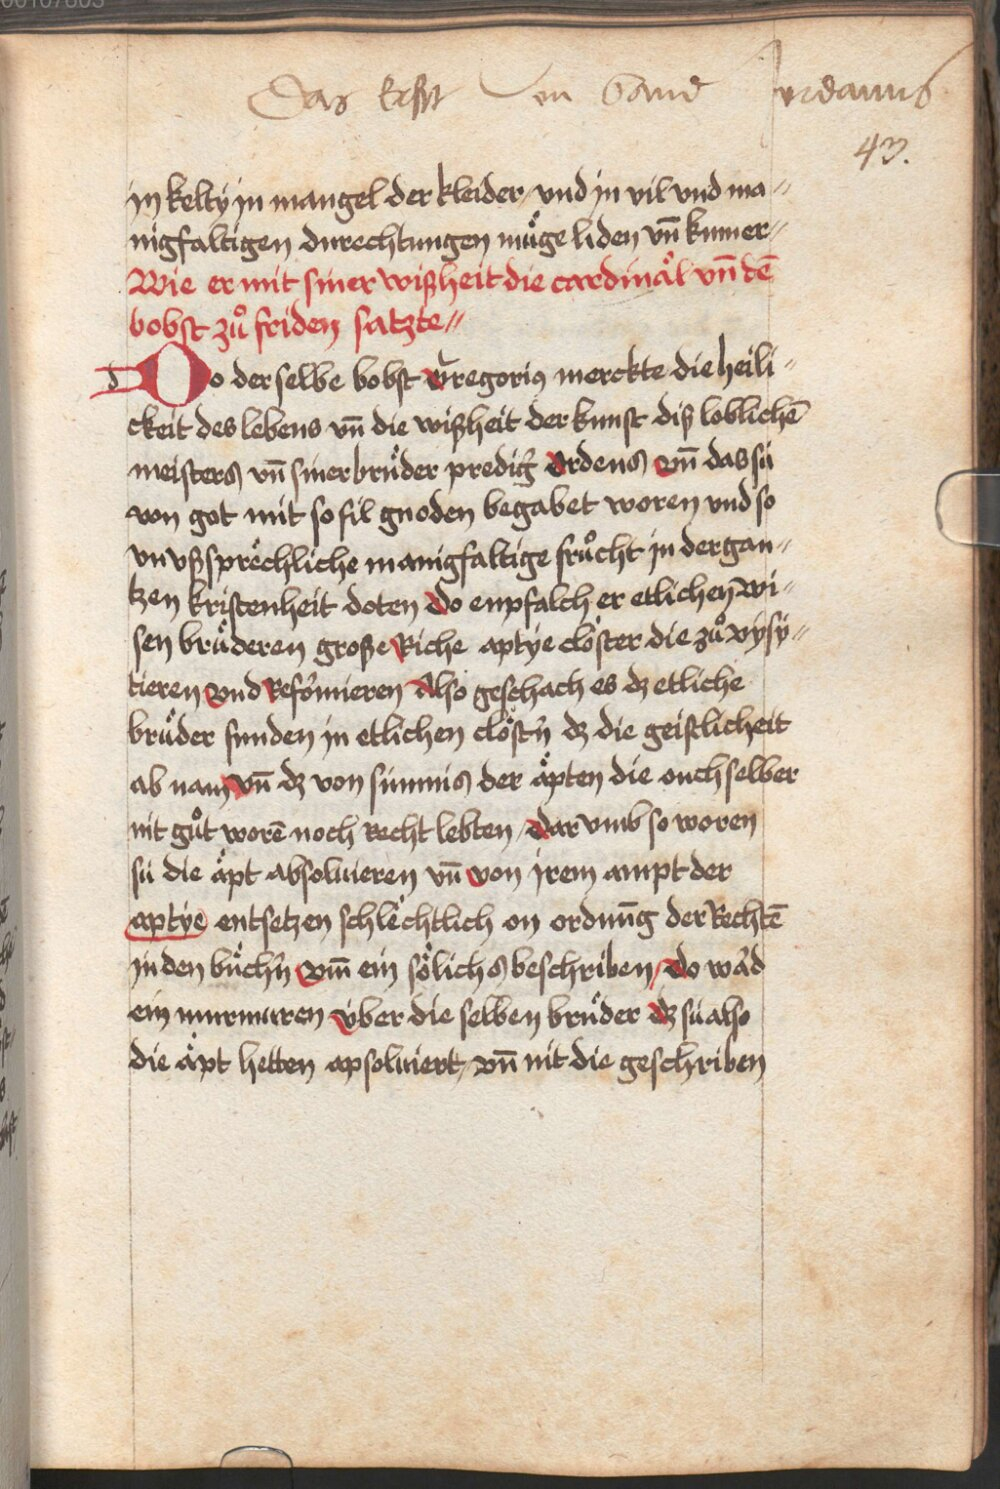 Das Erst Von Sand Jordanus
43.
in kelty in mangel der kleider / vnd in vil vnd ma〃
nigfaltigen durechtungen mu̓ge liden vn̄ kumer〃
Wie er mit siner wißheit die cardinål vn̄ dē
bobst zů friden satzte〃
d Do der selbe bobst Gregoriꝯ merckte die heili〃
ckeit des lebens vn̄ die wißheit der kunst diß loblichē
meisters vn̄ siner brůder predig̃ ordens vn̄ das sü
von got mit so fil gnoden begabet woren vnd so
vnvßsprechliche manigfaltige frůcht in der gan〃
tzen kristenheit doten Do enpfalch er etlichen wi〃
sen brůderen große Riche aptye clöster die zů vysy〃
tieren vnd Reformieren Also geschach es dz etliche
brůder funden in etlichen clöstn̄ dz die geistlicheit
ab nam vn̄ dz von sümnis der åpten die ouch selber
nit gůt worē noch Recht lebten / dar vmb so woren
sü die åpt absoluieren vn̄ von irem ampt der
aptye entsetzen schlechtlich on ordnūg der Rechtē
in den bůchn̄ vm̄ ein sölichs beschriben / do ward
ein murmuren v́ber die selben brůder dz sü also
die åpt hetten apsoluiert / vn̄ nit die geschriben